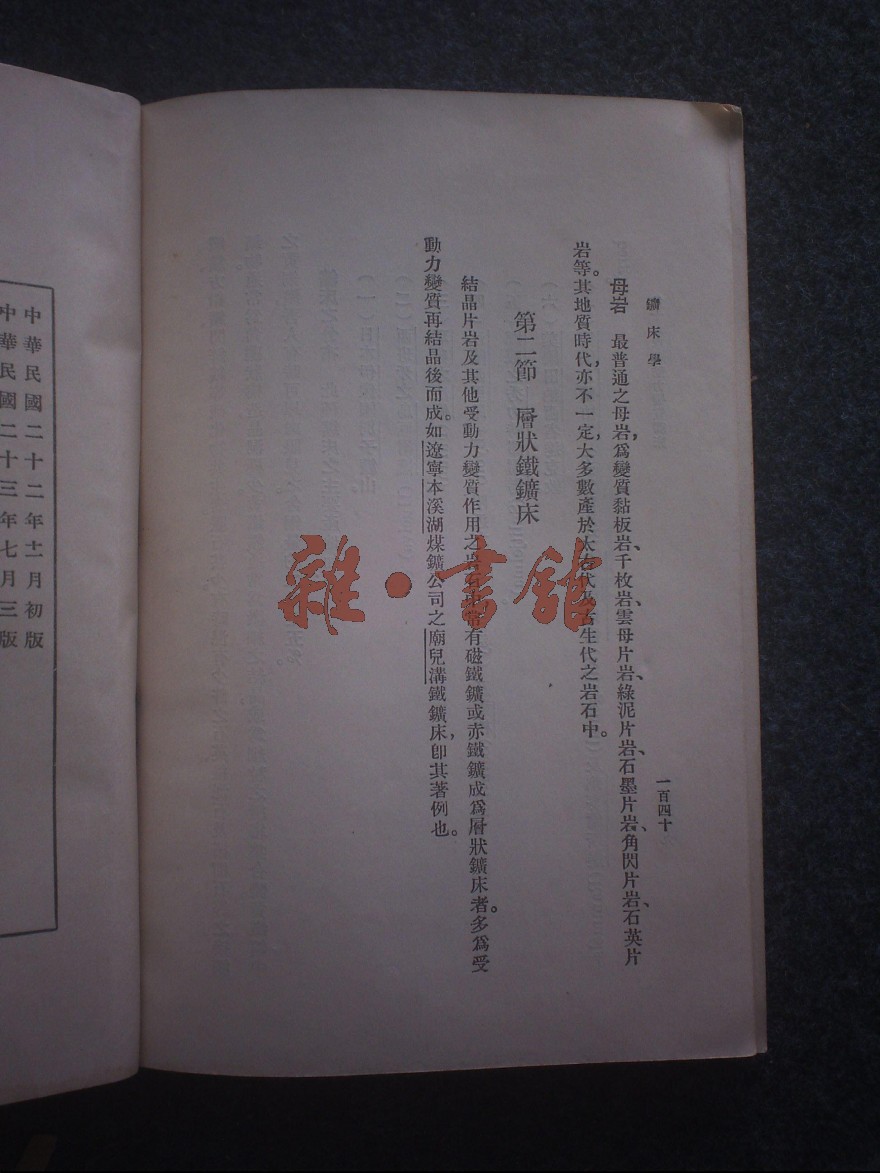 鑛床學
一百四十
母岩　最普通之母岩，爲變質黏板岩、千枚岩、雲母片岩、綠泥片岩、石墨片岩、角閃片岩、石英片
岩等。其地質時代，亦不一定，大多數產於太古代及古生代之岩石中。
第二節　層狀鐵鑛床
結晶片岩及其他受動力變質作用之岩石中常有磁鐵鑛或赤鐵鑛成爲層狀鑛床者。多爲受
動力變質再結晶後而成。如遼寧本溪湖煤鑛公司之廟兒溝鐵鑛床，卽其著例也。
中華民國二十二年十一月初版
中華民國二十三年七月三版
雜·書舘